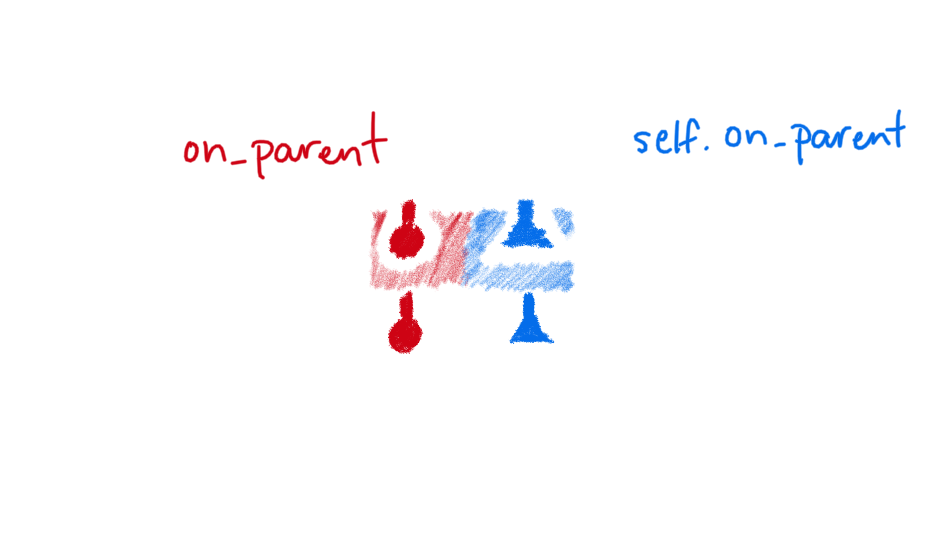 on_parent
self. on_parent